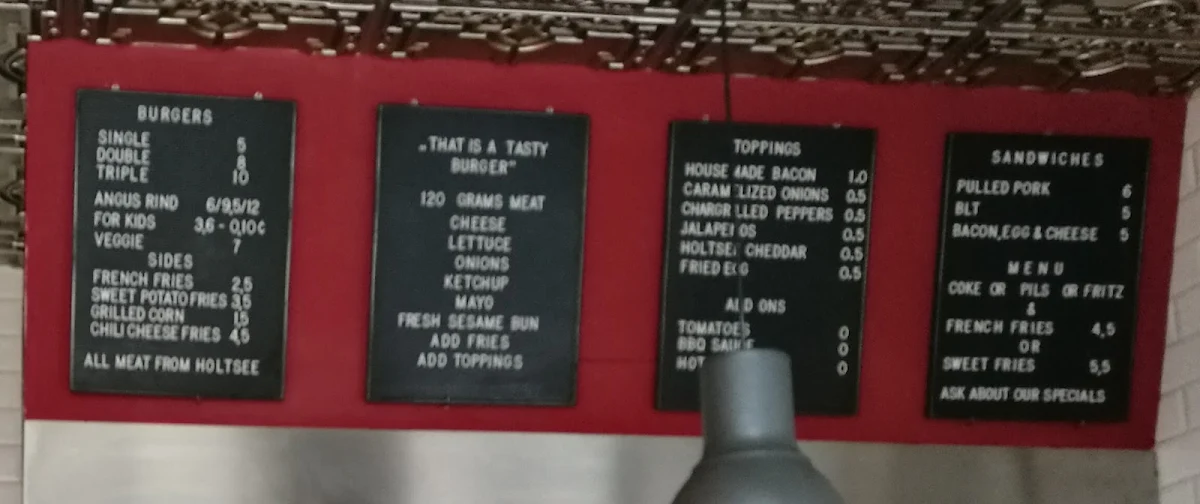 BURGERS
SINGLE 5
DOUBLE 8
TRIPLE 10
ANGUS RIND 6/9,5/12
FOR KIDS 3,6 - 0,10¢
VEGGIE 7
SIDES
FRENCH FRIES 2,5
SWEET POTATO FRIES 3,5
GRILLED CORN 1,5
CHILI CHEESE FRIES 4,5
ALL MEAT FROM HOLTSEE
„THAT IS A TASTY
BURGER"
120 GRAMS MEAT
CHEESE
LETTUCE
ONIONS
KETCHUP
MAYO
FRESH SESAME BUN
ADD FRIES
ADD TOPPINGS
TOPPINGS
HOUSE MADE BACON 1.0
CARAMELIZED ONIONS 0.5
CHARGRILLED PEPPERS 0.5
JALAPENOS 0.5
HOLTSEE CHEDDAR 0.5
FRIED EGG 0.5
ADD ONS
TOMATOES 0
BBQ SAUCE 0
HOT 0
SANDWICHES
PULLED PORK 6
BLT 5
BACON,EGG & CHEESE 5
MENU
COKE OR PILS OR FRITZ
&
FRENCH FRIES 4,5
OR
SWEET FRIES 5,5
ASK ABOUT OUR SPECIALS